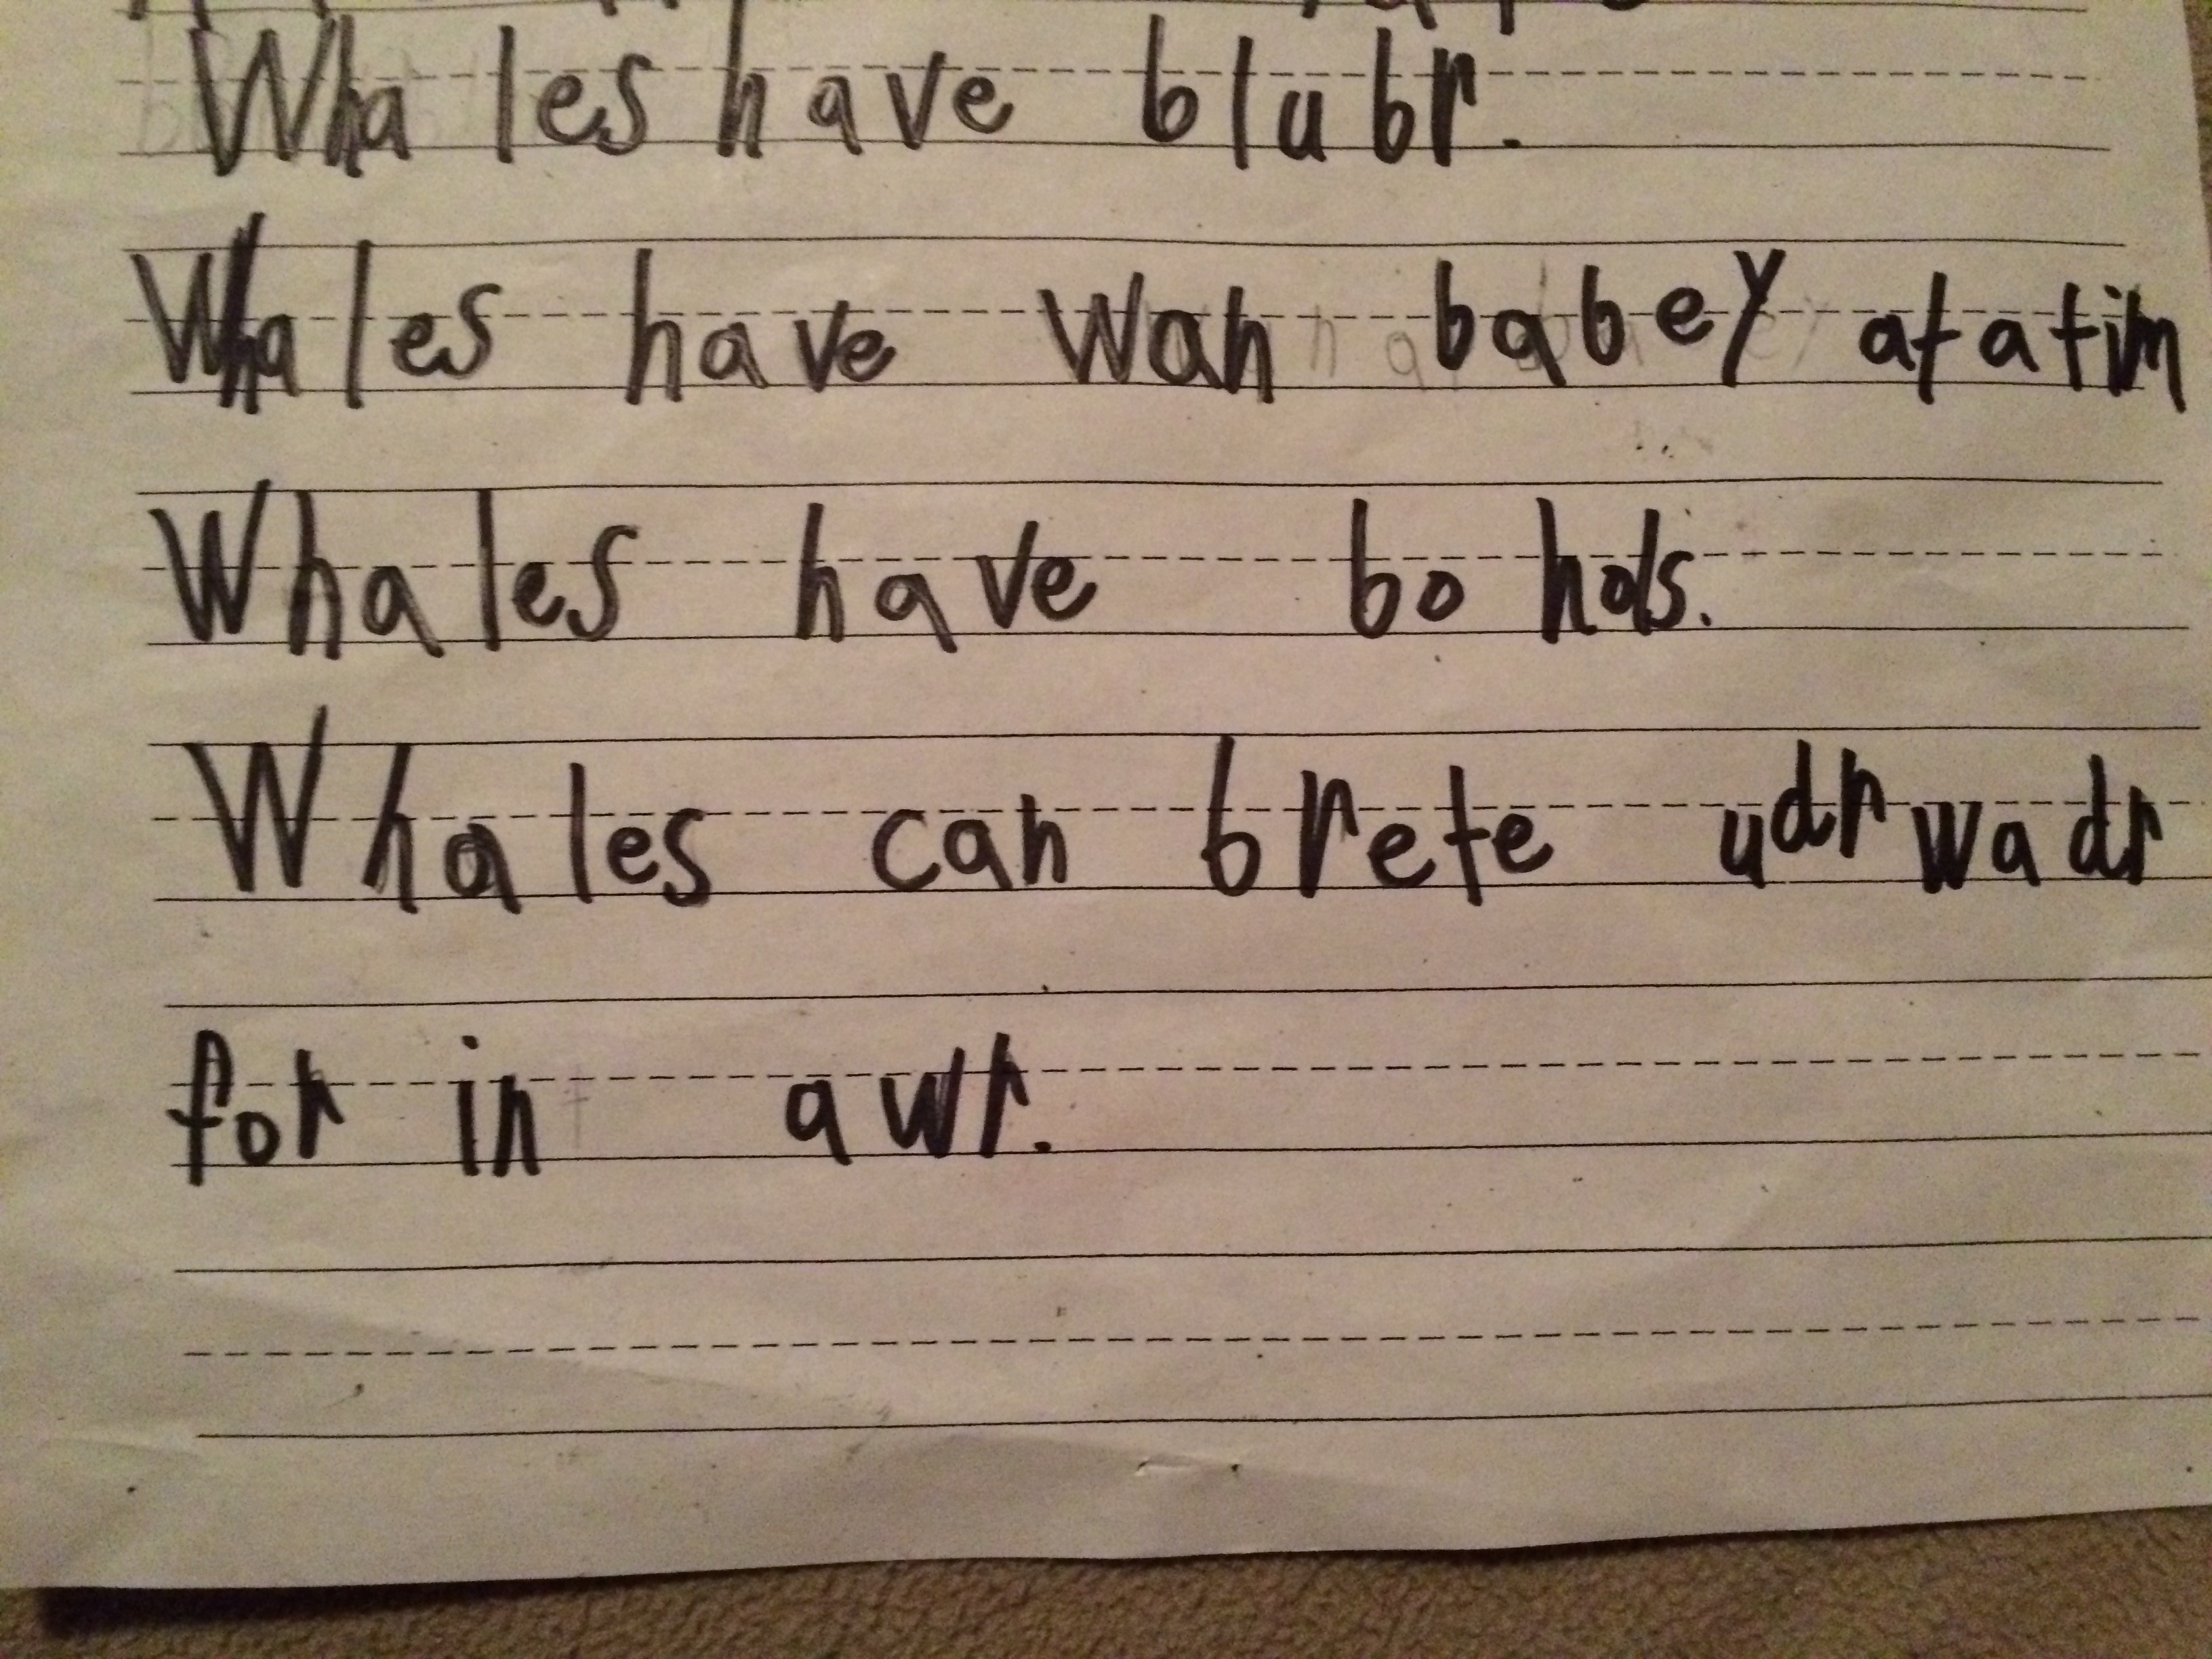 Whales have blubr.
Whales have wan babey at a tim
Whales have bo hols.
Whales can brete udr wadr
for in awr.